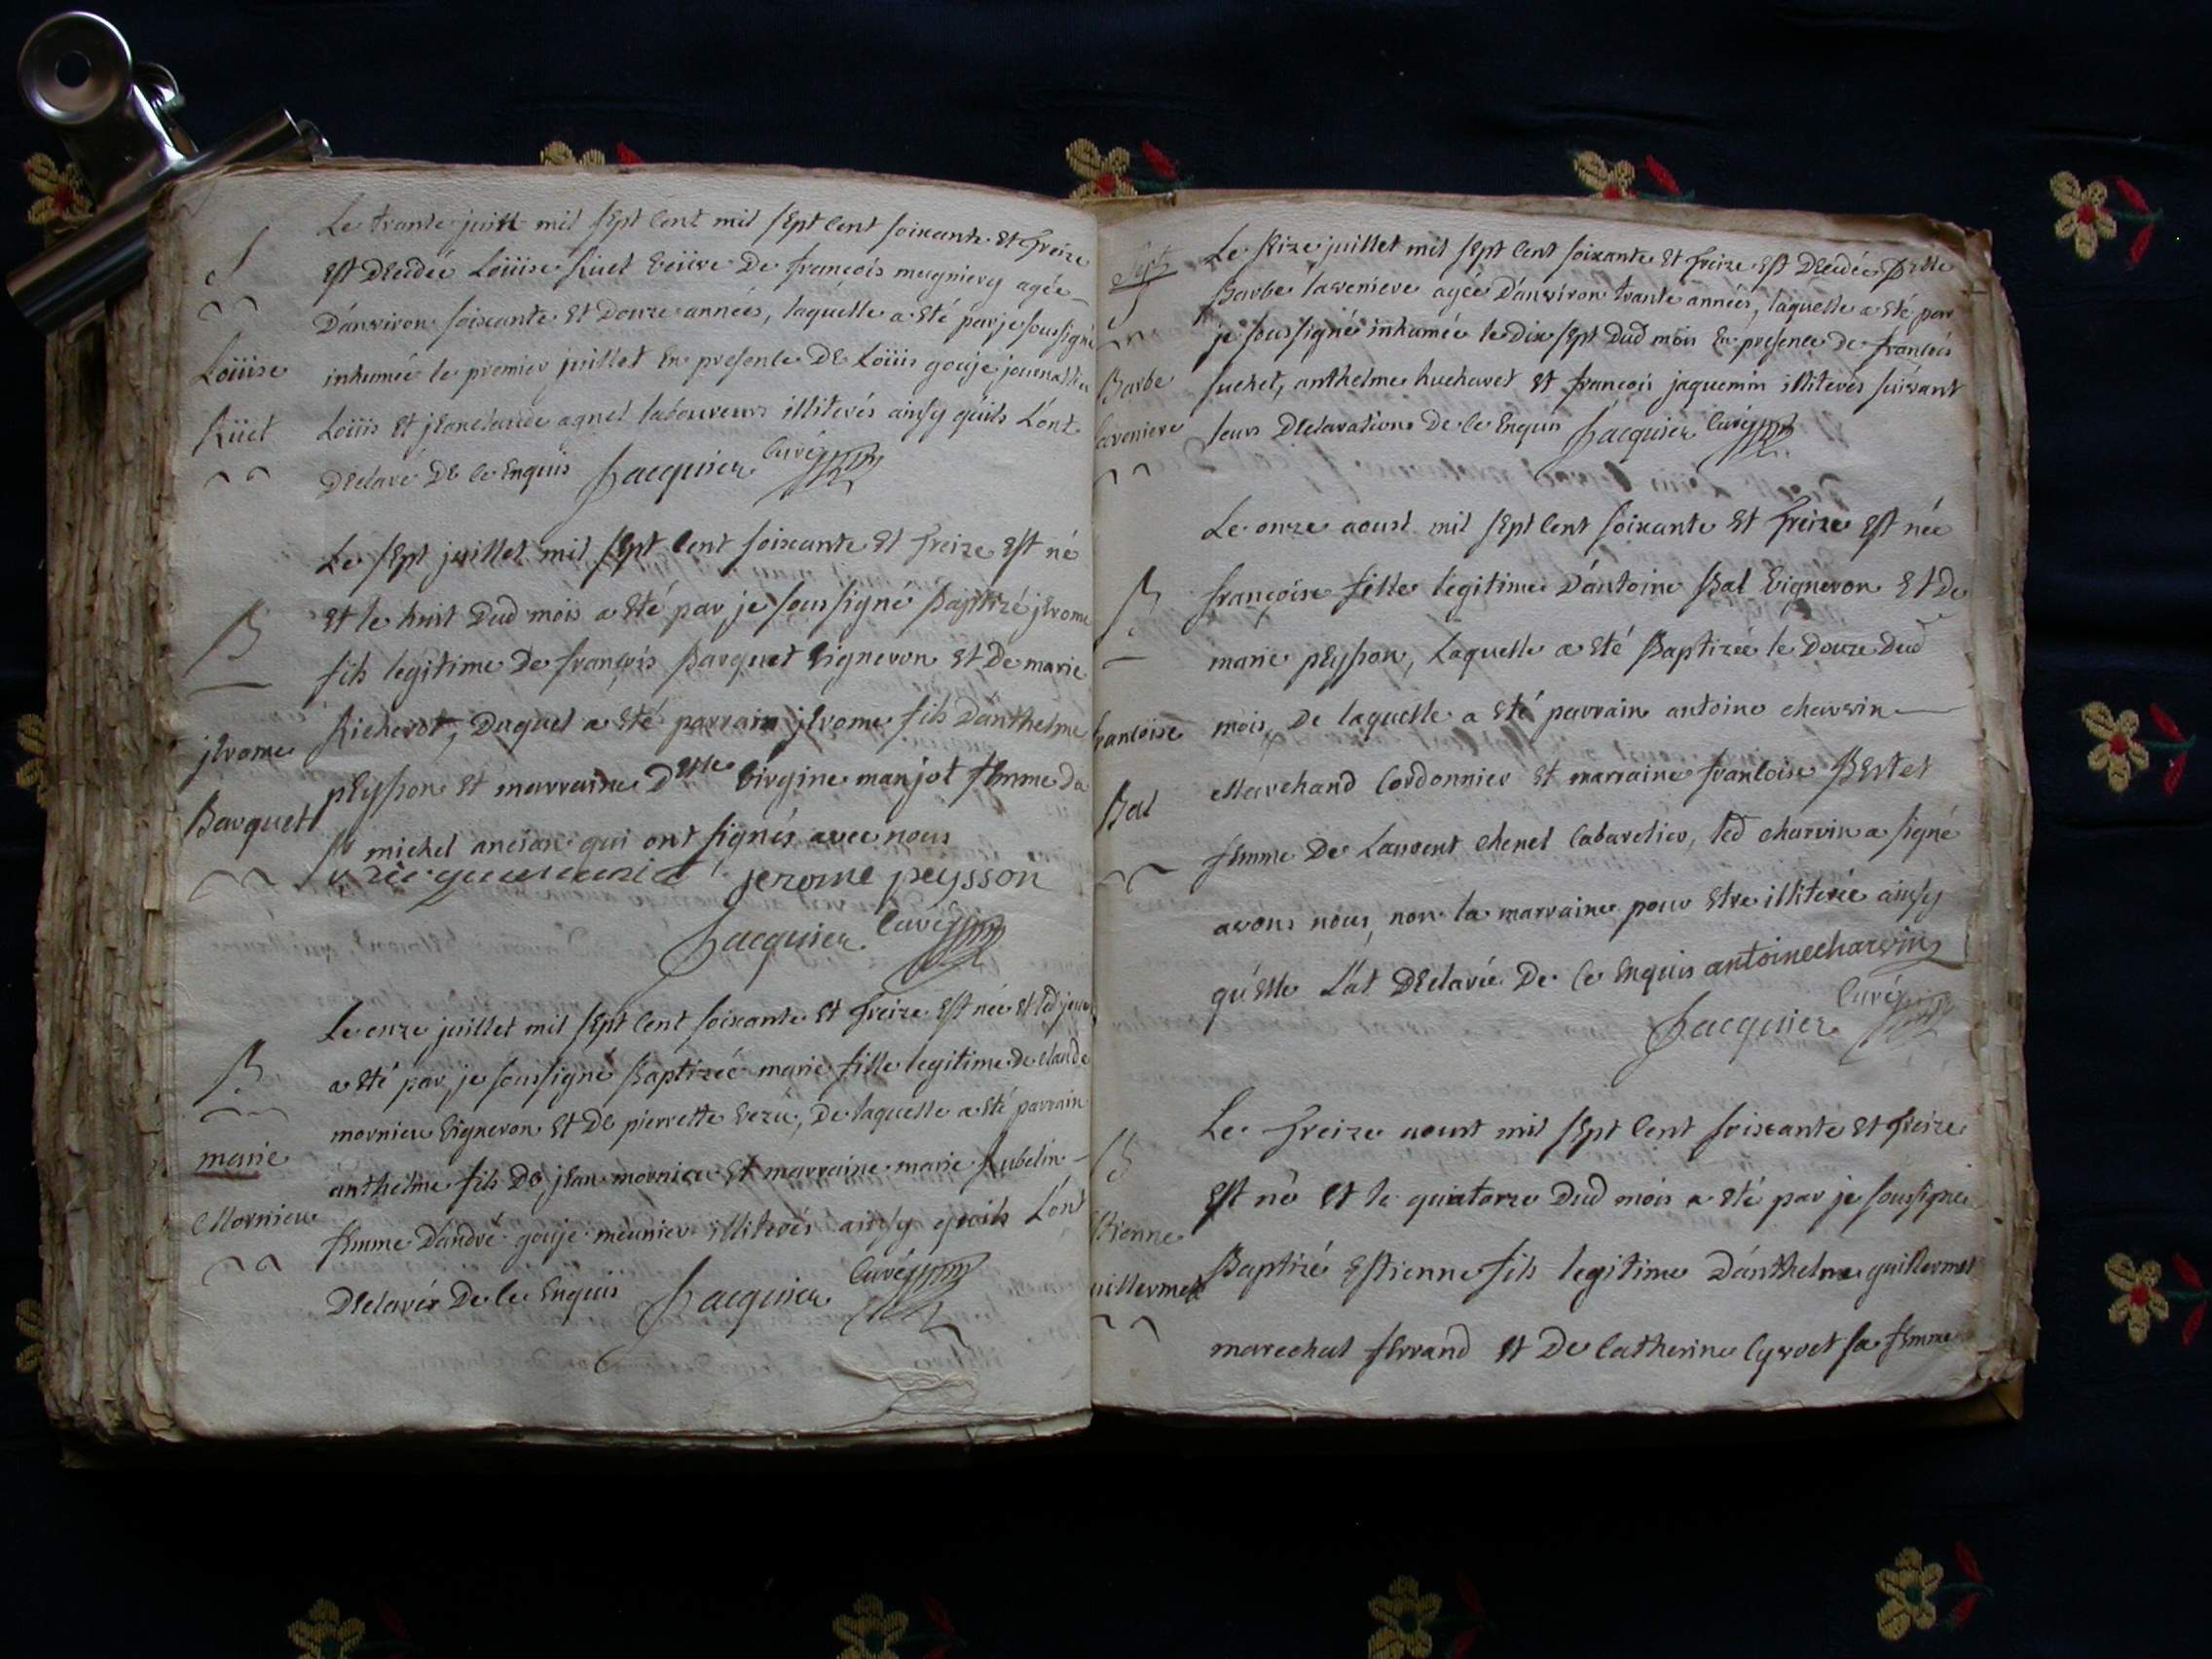 Le trante juin mil sept cent mil sept cent soixante et treize
S
est decedeé Loüise Rüet veüve de françois mugniery agée
Danviron soixante et douze années, laquelle a eté par je soussigné
Loüise
inhumée le premier juillet en presence de Loüis gouje journallier
Rüet
Loüis et jeanclaude agnel laboureurs illiterés ainsy quils L'ont
Declaré de ce enquis Jacquier Curé
Le sept juillet mil sept cent soixante et treize est né
et le huit dud mois a eté par je soussigné Baptizé jerome
B
fils legitime de françois Barquet vigneron et de marie
Richerot, duquel a eté parrain jerome fils d'anthelme
jerome
peysson et marraine Delle virgine manjot femme du
Barquet
Sr michel ancian qui ont signés avec nous
jerome peysson
Jacquier Curé
Le onze juillet mil sept cent soixante et treize est née et led jour
B
a eté par je soussigné Baptizée marie fille legitime de claude
mornieu vigneron et de pierrette vezu, de laquelle a eté parrain
marie
anthelme fils de jean mornieu et marraine marie Rubelin
Mornieu
femme d'andré gouje meunier illiterés ainsy quils L'ont
Declarés de ce enquis Jacquier Curé
Le seize juillet mil sept cent soixante et treize est decedée
S
Barbe laveniere agée d'anviron trante années, laquelle a eté par
je soussigné inhumée le dix sept dud mois en presence de francois
Barbe
suchet, anthelme huchavet et francois jaquemin illiterés suivant
laveniere
leurs declarations de ce enquis Jacquier Curé
Le onze aoust mil sept cent soixante et treize est née
B
françoise fille legitime d'antoine Bal vigneron et de
marie peysson, Laquelle a eté Baptizée le douze dud
francoise
mois, de laquelle a eté parrain antoine charvin
Bal
Marchand Cordonnier et marraine francoise Bertet
femme de Laurent chenel cabaretier, led charvin a signé
avons nous, non la marraine pour etre illiterée ainsy
qu'elle L'at declarée de ce enquis antoinecharvin
Jacquier Curé
Le treize aoust mil sept cent soixante et treize
B
est né et le quatorze dud mois a eté par je soussigné
Etienne
Baptizé Estienne fils legitime d'anthelme guillermet
uillermet
marechal ferrand et de Catherine Cyvoct sa femme